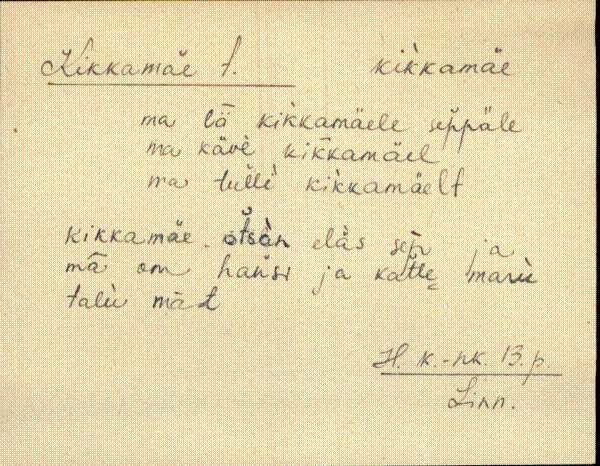 Kikkamäe t. kikkamäe
ma lǟ kikkamäele seppäle
ma kävè kikkamäel
ma tullì kikkamäelt
kikkamäe otsàn eläs sep̀ ja
mā om hansi ja katte marù
talù māt
H. k.-nk. 13. p.
Linn.